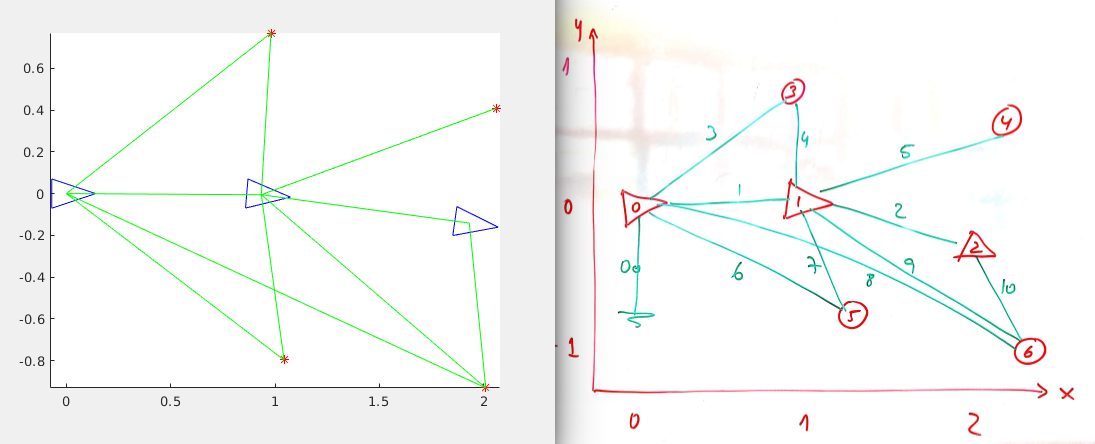 0.6
0.4
0.2
0
-0.2
-0.4
-0.6
-0.8
0 0.5 1 1.5 2
y
1
3
4
3
4
5
0
0
1
1
2
2
0
6
7
8
9
10
5
6
-1
x
0 1 2